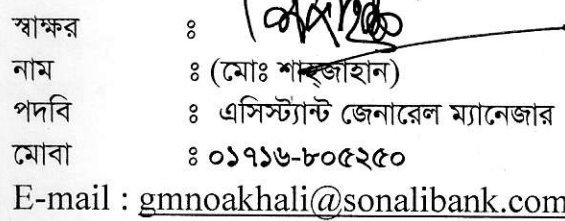 স্বাক্ষর ঃ
নাম ঃ (মোঃ শাহ্জাহান)
পদবি ঃ এসিস্ট্যান্ট জেনারেল ম্যানেজার
মোবা ঃ ০১৭১৬-৮০৫২৫০
E-mail : gmnoakhali@sonalibank.com